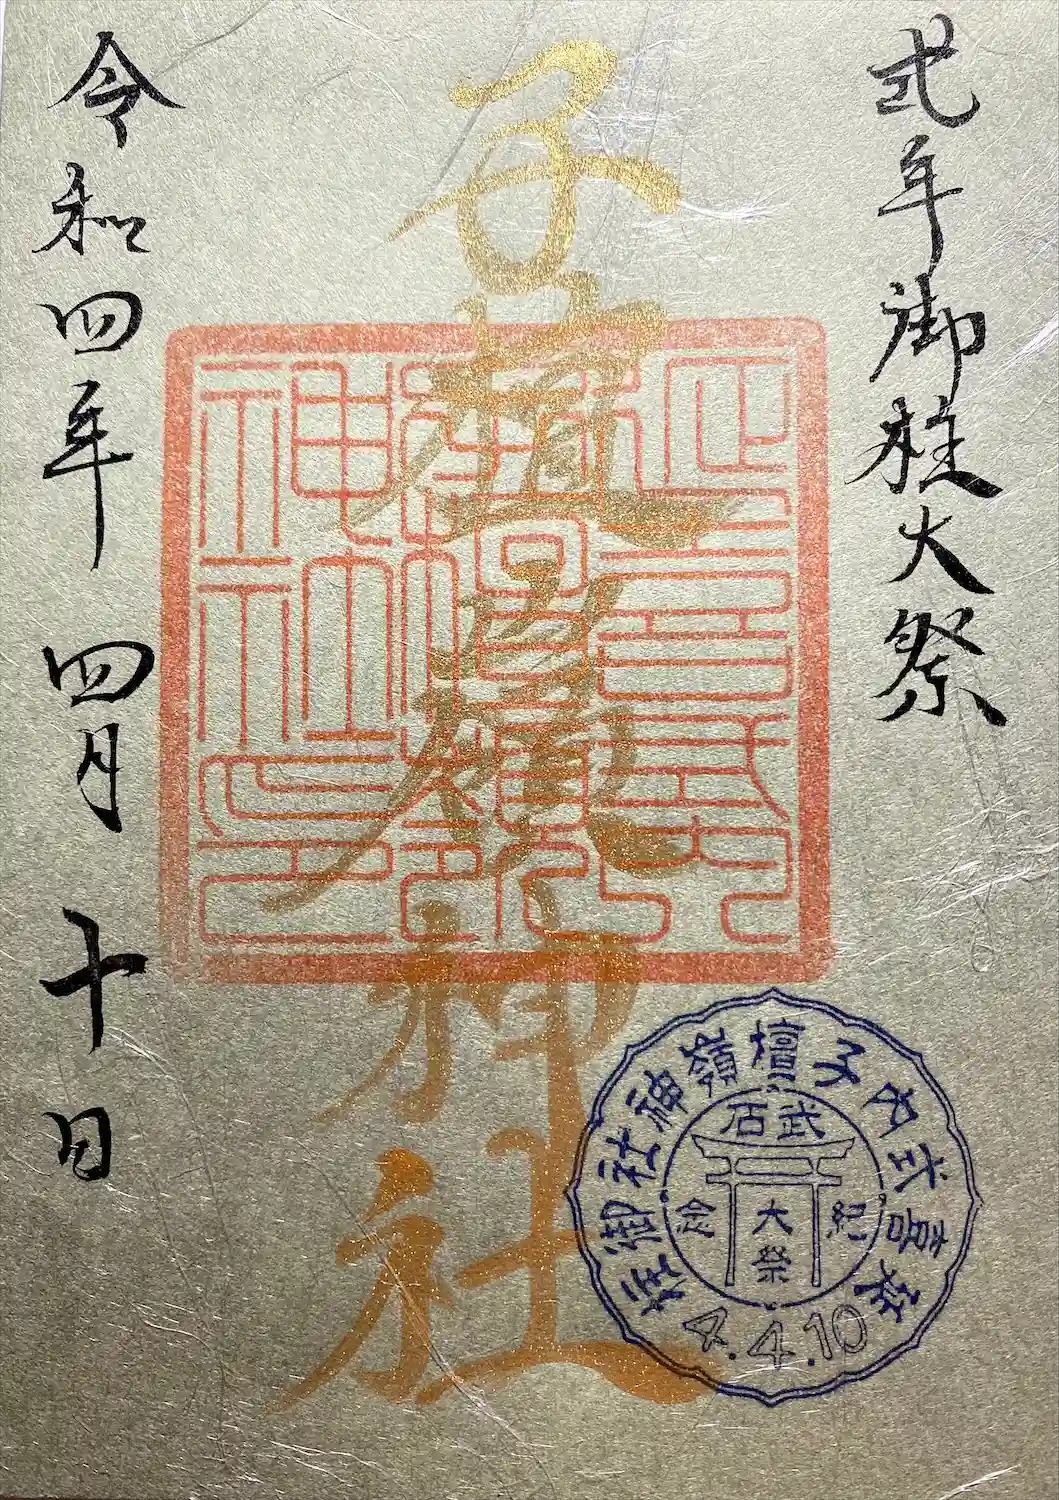 式年御柱大祭
子檀嶺神社
令和四年 四月 十日
延喜式内
神社之印
延喜式内子檀嶺神社御柱
武石
大祭
4.4.10